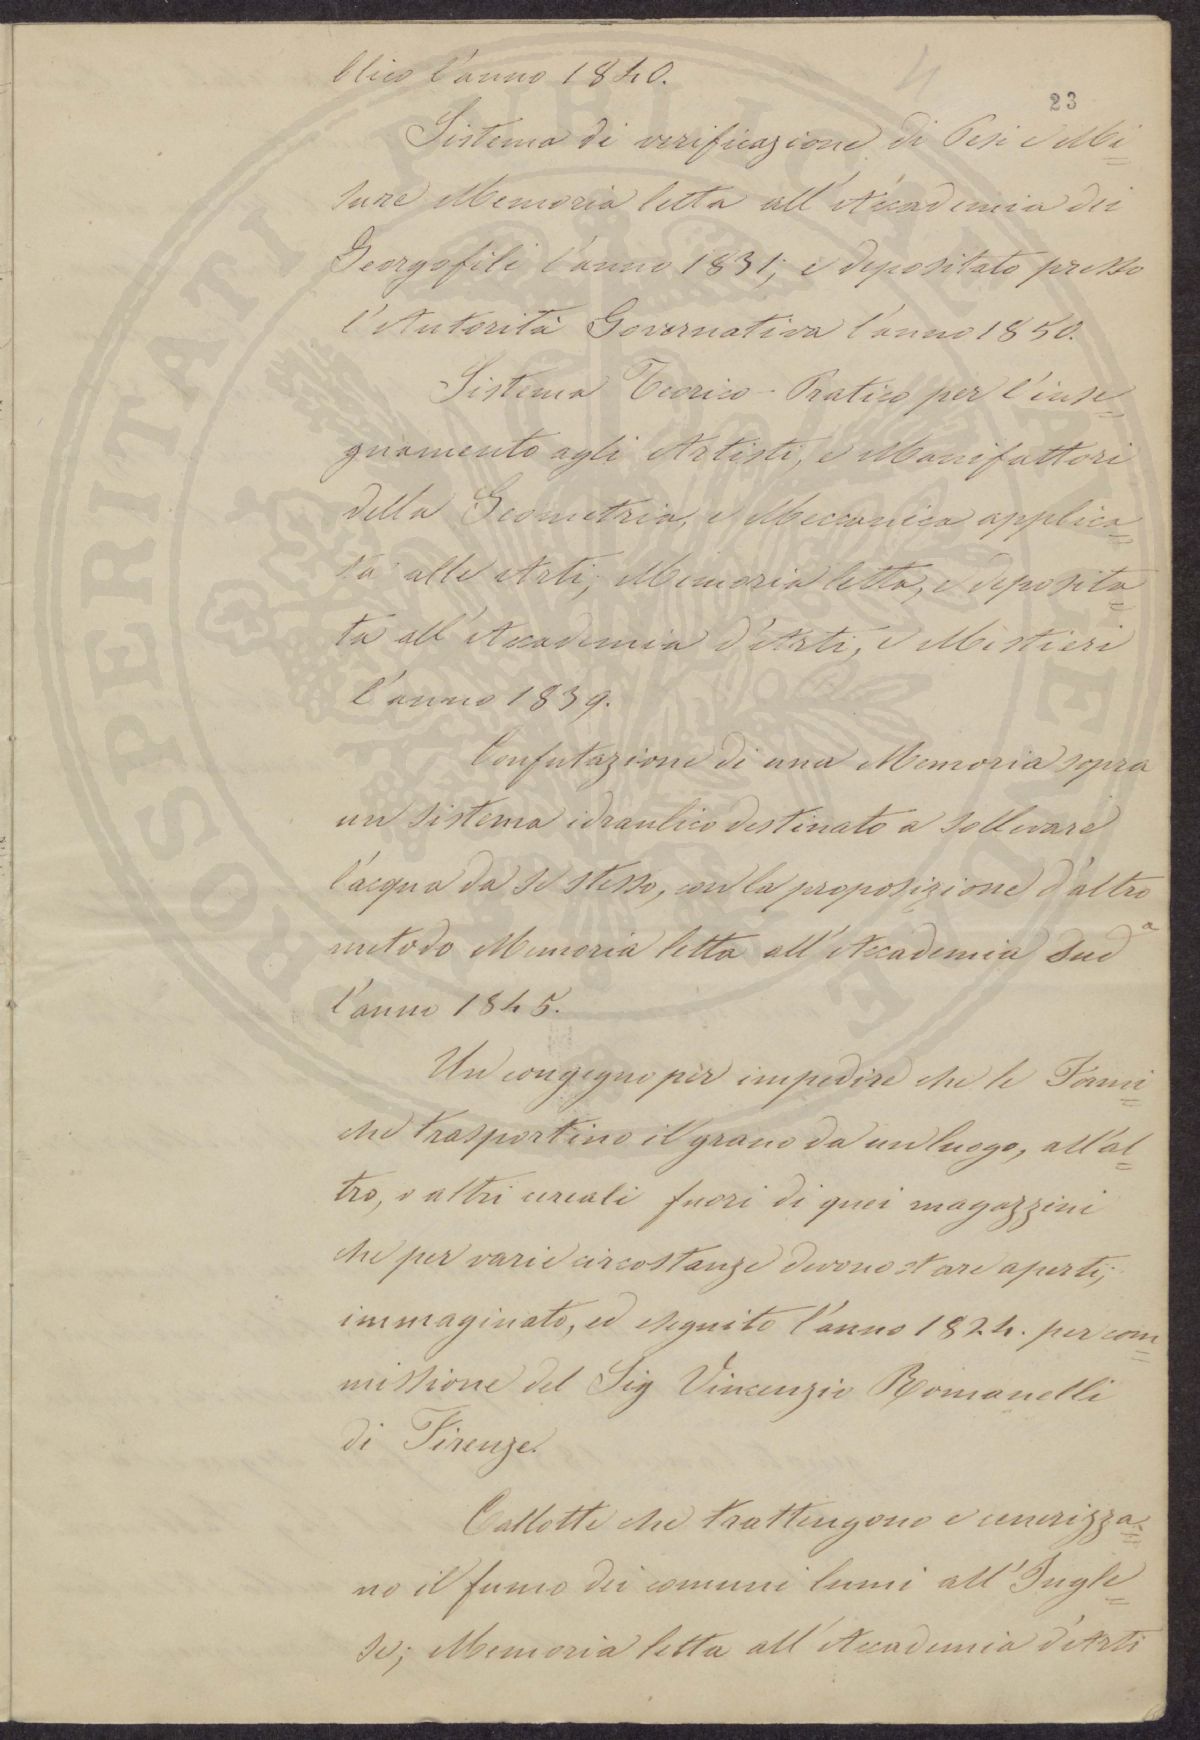 blico l'anno 1840.
23
Sistema di verificazione di Pesi e Mi=
sure Memoria letta all'Accademia dei
Georgofili l'anno 1831; e depositato presso
l'Autorità Governativa l'anno 1850.
Sistema Teorico-Pratico per l'inse=
gnamento agli Artisti, e Manifattori
della Geometria, e Meccanica applica=
ta alle Arti; Memoria letta, e deposita=
ta all'Accademia d'Arti, e Mestieri
l'anno 1839.
Confutazione di una Memoria sopra
un sistema idraulico destinato a sollevare
l'acqua da se stesso, con la proposizione d'altro
metodo Memoria letta all'Accademia sudª
l'anno 1845.
Un congegno per impedire che le Formi=
che trasportino il grano da un luogo, all'al=
tro, o altri cereali fuori di quei magazzini
che per varie circostanze devono stare aperti;
immaginato, ed eseguito l'anno 1824. per com=
missione del Sig Vincenzio Romanelli
di Firenze.
Callotte che trattengono e cenerizza=
no il fumo dei comuni lumi all'Ingle=
se; Memoria letta all'Accademia d'Arti
PROSPERITATI PUBLICAE AUGENDAE